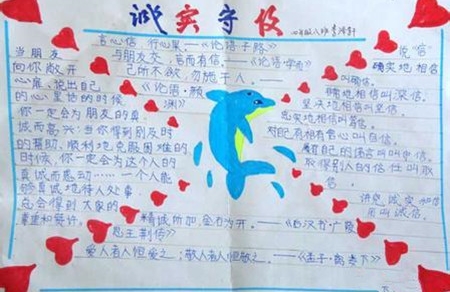 诚实守信
言必信,行必果—《论语·子路》
与朋友交,言而有信。—《论语·学而》
己所不欲,勿施于人。—
《论语·颜
渊》
当朋友
向你敞开
心扉、说出自己
的心里话的时候,
你一定会为朋友的真
诚而高兴;当你得到别人
的帮助、顺利地克服困难的
时候,你一定会为这个人的
真诚而感动……一个人能
够真诚地待人处事,
总会得到大家的
尊重和赞许。
说“信”
确实地相信
叫确信。
深地相信叫深信。
坚决地相信叫坚信。
忠实地相信叫笃信。
对自己有相信心叫自信。
履行自己的诺言叫守信。
取得别人的信任叫取
信。
讲究诚实和信
用叫诚信。
精诚所加,金石为开。——《后汉书·广陵
思王荆传》
爱人者,人恒爱之;敬人者,人恒敬之。—《孟子·离娄下》